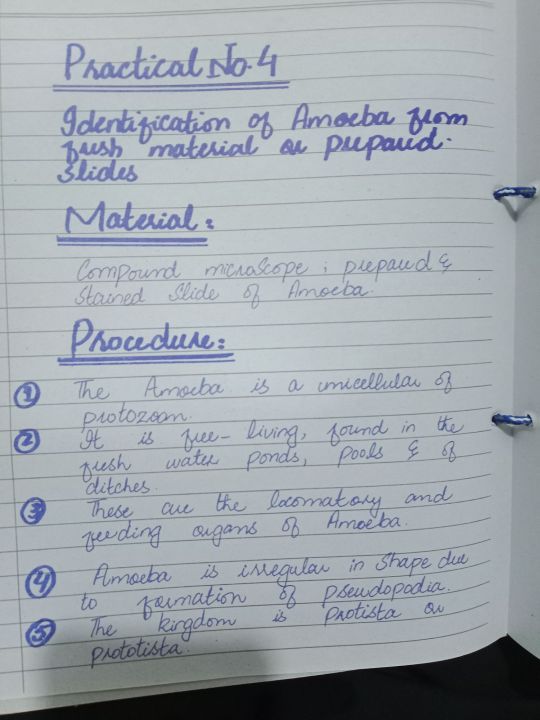 Practical No. 4
Identification of Amoeba from
fresh material or prepared.
slides
Material:
Compound microscope ; prepared &
stained slide of Amoeba.
Procedure:
① The Amoeba is a unicellular of
protozoan.
② It is free-living, found in the
fresh water ponds, pools & of
ditches.
③ These are the locomatory and
feeding organs of Amoeba.
④ Amoeba is irregular in shape due
to formation of pseudopodia.
⑤ The kingdom is protista or
prototista.